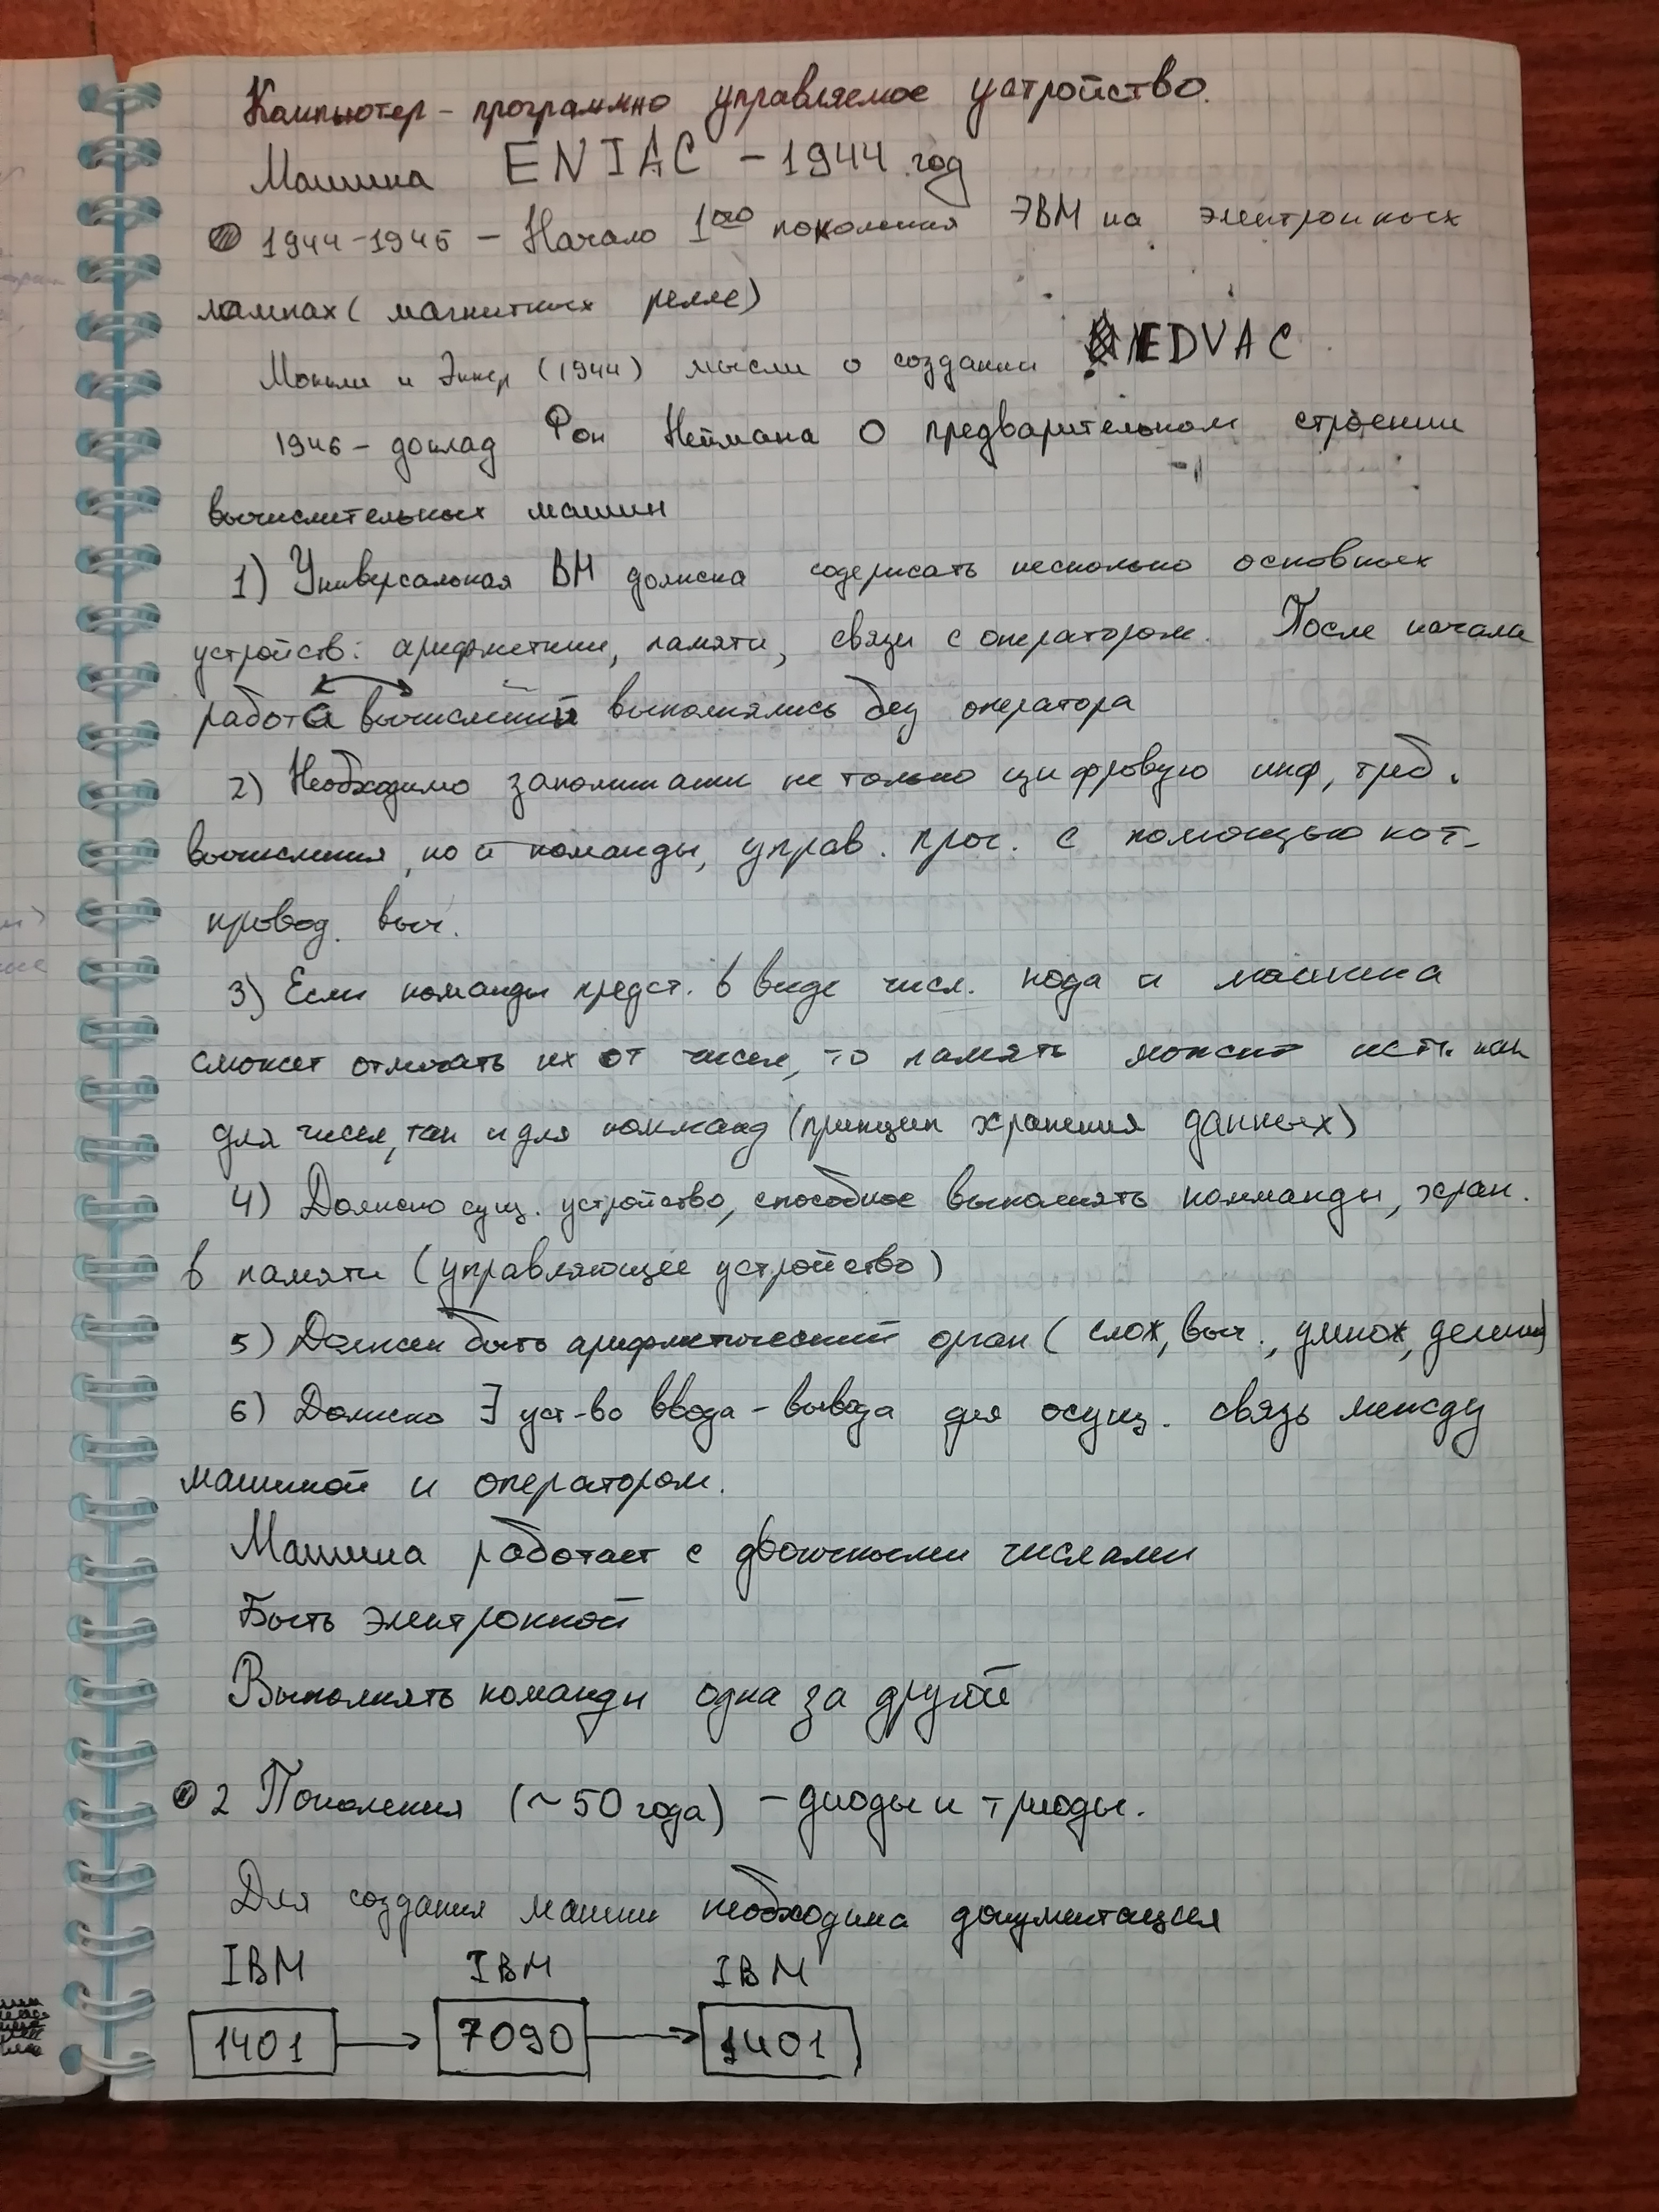 Компьютер – программно управляемое устройство.
Машина ENIAC – 1944 год
1944-1945 – Начало 1ого поколения ЭВМ на электронных
лампах (магнитных релле)
Мокли и Эккер (1944) мысли о создании EDVAC
1946 – доклад Фон Неймана о предварительном строении
вычислительных машин
1) Универсальная ВМ должна содержать несколько основных
устройств: арифметики, памяти, связи с оператором. После начала
работа вычислений выполнялись без оператора
2) Необходимо запоминать не только цифровую инф, треб.
вычисления, но и команды, управ. прог. с помощью кот.
провод. выч.
3) Если команды предст. в виде числ. кода и машина
сможет отличать их от чисел, то память может исп. как
для чисел, так и для комманд (принцип хранения данных)
4) Должно сущ. устройство, способное выполнять комманды, хран.
в памяти (управляющее устройство)
5) Должен быть арифметический орган (слож, выч., умнож, деления)
6) Должно ∃ уст-во ввода-вывода для осущ. связь между
машиной и оператором.
Машина работает с двоичными числами
Быть электронной
Выполнять команды одна за другой
2 Поколения (~50 года) – диоды и триоды.
Для создания машин необходима документация
IBM IBM IBM
1401 → 7090 → 1401